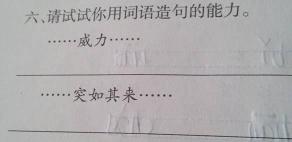 六、请试试你用词语造句的能力。
……威力……
……突如其来……